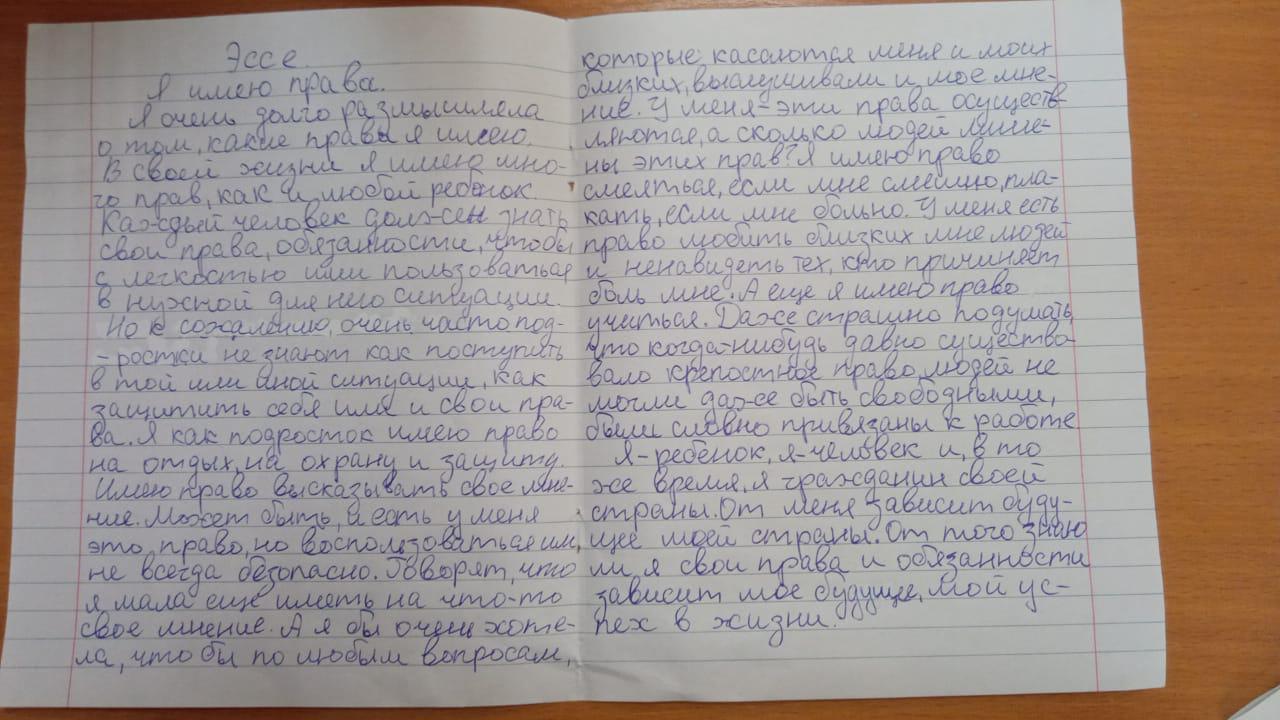 Эссе.
Я имею права.
Я очень долго размышляла
о том, какие права я имею.
В своей жизни я имею мно-
го прав, как и любой ребенок.
Каждый человек должен знать
свои права, обязанности, чтобы
с легкостью ими пользоваться
в нужной для него ситуации.
Но к сожалению, очень часто под-
-ростки не знают как поступить
в той или иной ситуации, как
защитить себя имя и свои пра-
ва. Я как подросток имею право
на отдых, на охрану и защиту.
Имею право высказывать свое мне-
ние. Может быть, и есть у меня
это, право, но воспользоваться им,
не всегда безопасно. Говорят, что
я мала еще иметь на что-то
свое мнение. А я бы очень хоте-
ла, что бы по любым вопросам,
которые касаются меня и моих
близких, выслушивали и мое мне-
ние. У меня - эти права осуществ-
ляются, а сколько людей лише-
ны этих прав? Я имею право
смеяться, если мне смешно, пла-
кать, если мне больно. У меня есть
право любить близких мне людей
и ненавидеть тех, кто причиняет
боль мне. А еще я имею право
учиться. Даже страшно подумать,
что когда-нибудь давно существо
вало крепостное право, людей не
могли даже быть свободными,
были словно привязаны к работе
Я-ребенок, я-человек и, в то
же время, я гражданин своей
страны. От меня зависит буду-
щее моей страны. От того знаю
ли я свои права и обязанности
зависит мое будущее, мой ус-
пех в жизни.